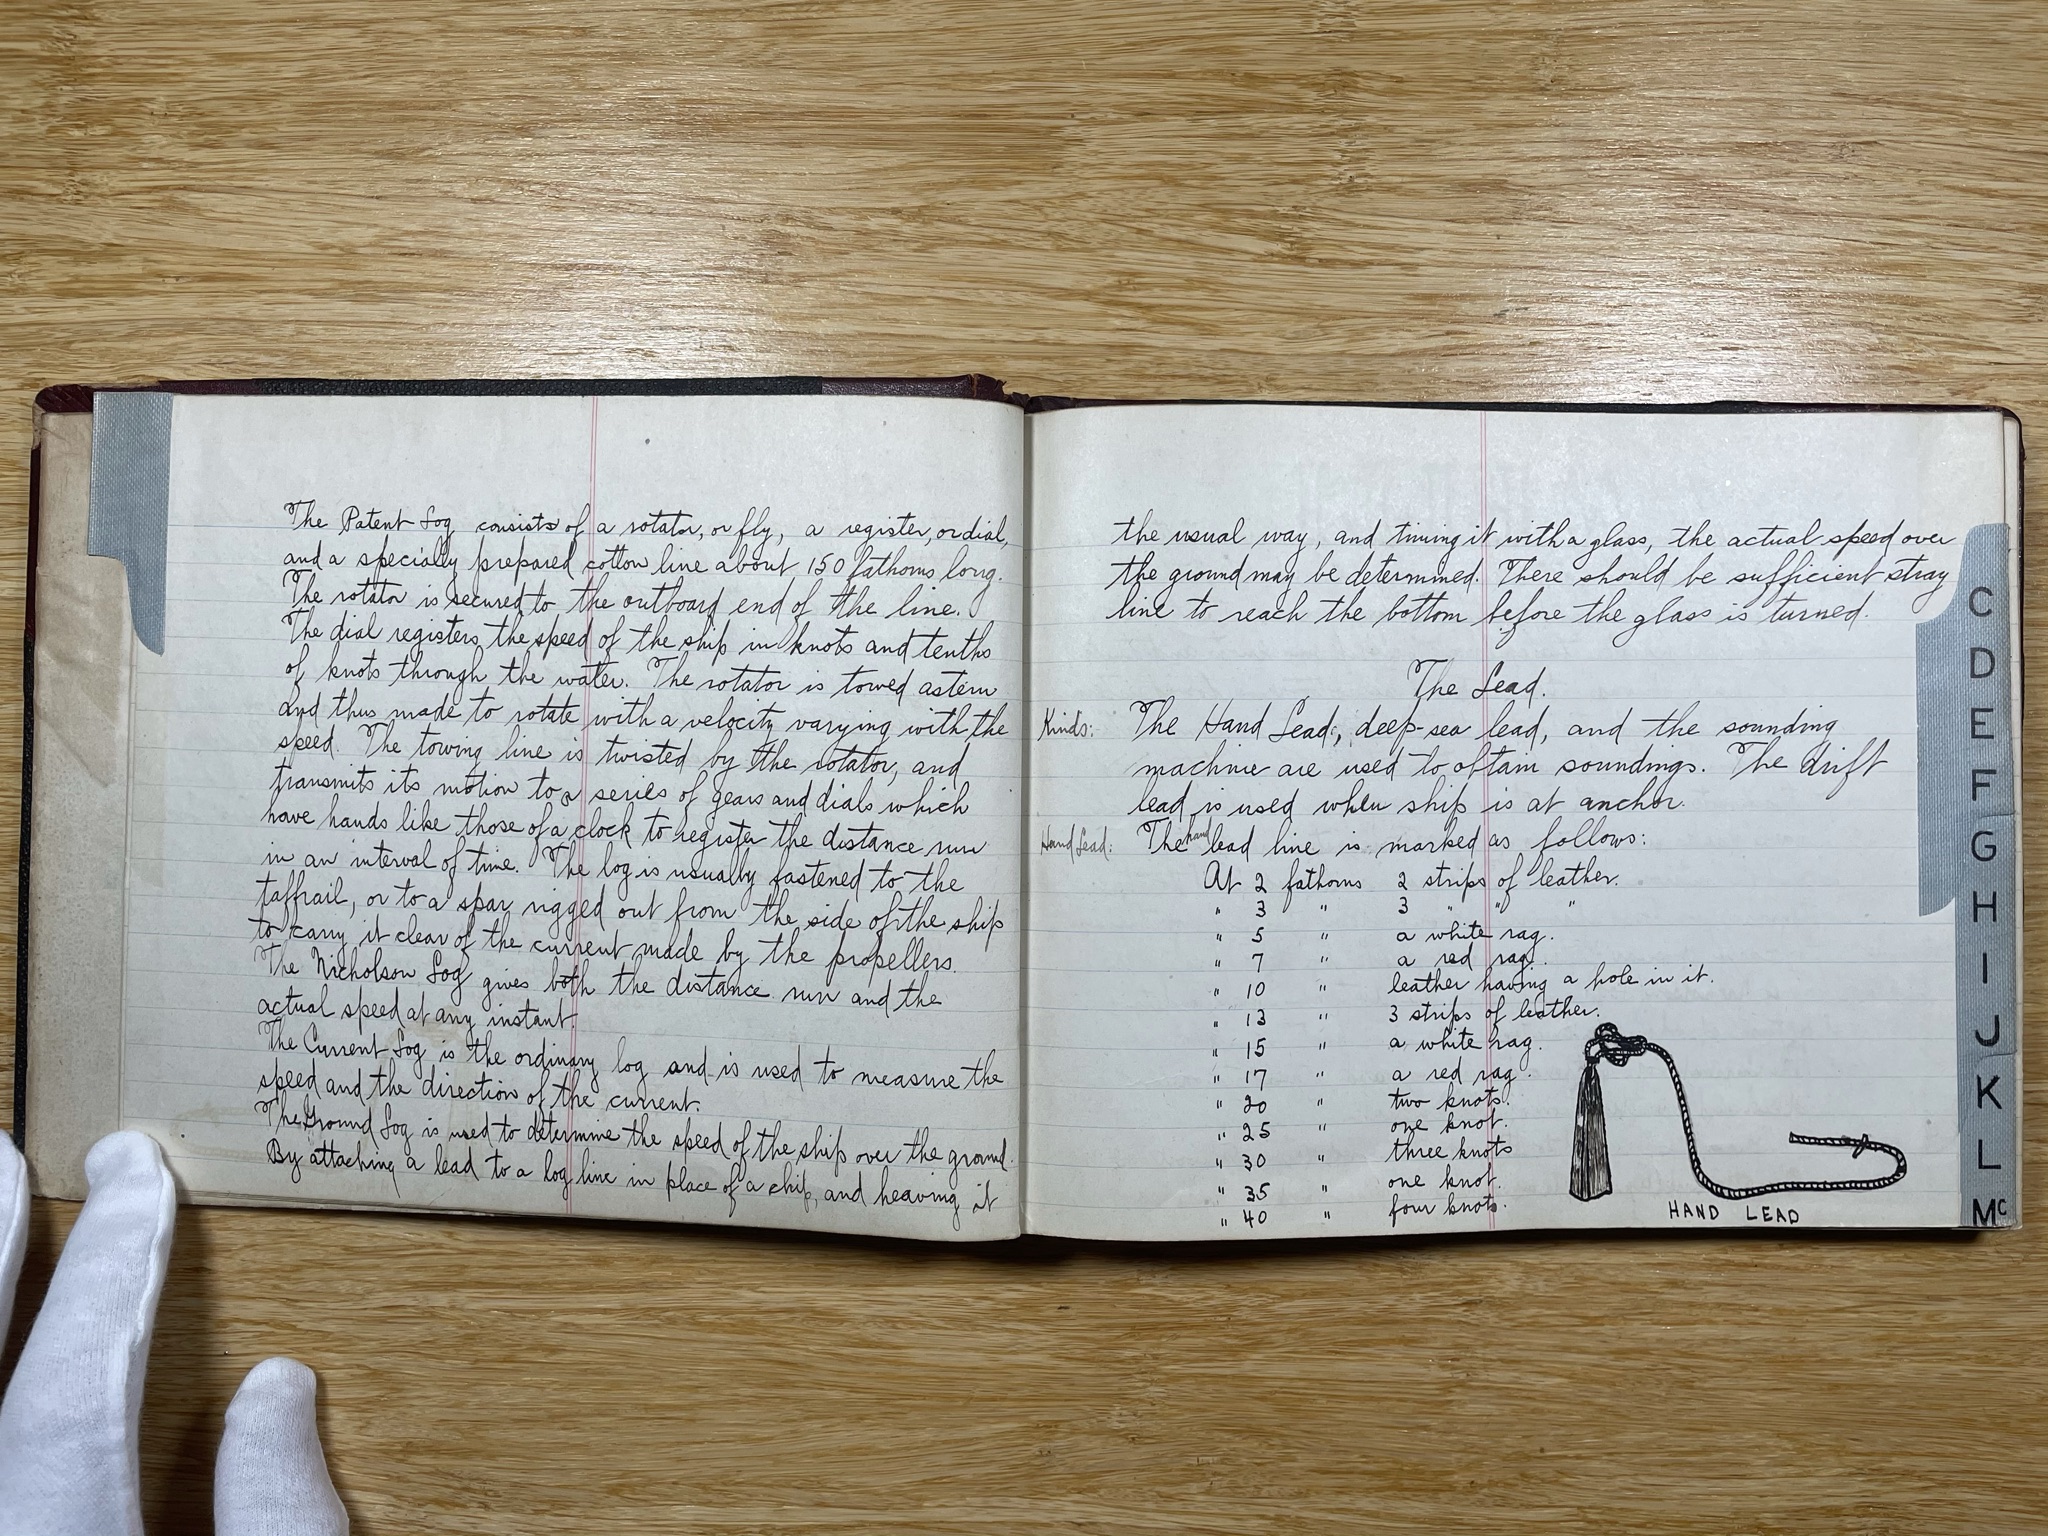 The Patent Log consists of a rotator, or fly, a register, or dial,
and a specially prepared cotton line about 150 fathoms long.
The rotator is secured to the outboard end of the line.
The dial registers the speed of the ship in knots and tenths
of knots through the water. The rotator is towed astern
and thus made to rotate with a velocity varying with the
speed. The towing line is twisted by the rotator, and
transmits its motion to a series of gears and dials which
have hands like those of a clock to register the distance run
in an interval of time. The log is usually fastened to the
taffrail, or to a spar rigged out from the side of the ship
to carry it clear of the current made by the propellers.
The Nicholson Log gives both the distance run and the
actual speed at any instant.
The Current Log is the ordinary log and is used to measure the
speed and the direction of the current.
The Ground Log is used to determine the speed of the ship over the ground.
By attaching a lead to a log line in place of a chip, and heaving it
the usual way, and timing it with a glass, the actual speed over
the ground may be determined. There should be sufficient stray
line to reach the bottom before the glass is turned.
The Lead.
Kinds: The Hand Lead, deep-sea lead, and the sounding
machine are used to obtain soundings. The drift
lead is used when ship is at anchor.
Hand Lead: The hand lead line is marked as follows:
At 2 fathoms 2 strips of leather.
" 3 " 3 " " "
" 5 " a white rag.
" 7 " a red rag.
" 10 " leather having a hole in it.
" 13 " 3 strips of leather.
" 15 " a white rag.
" 17 " a red rag.
" 20 " two knots.
" 25 " one knot.
" 30 " three knots
" 35 " one knot.
" 40 " four knots.
HAND LEAD
C
D
E
F
G
H
I
J
K
L
Mc